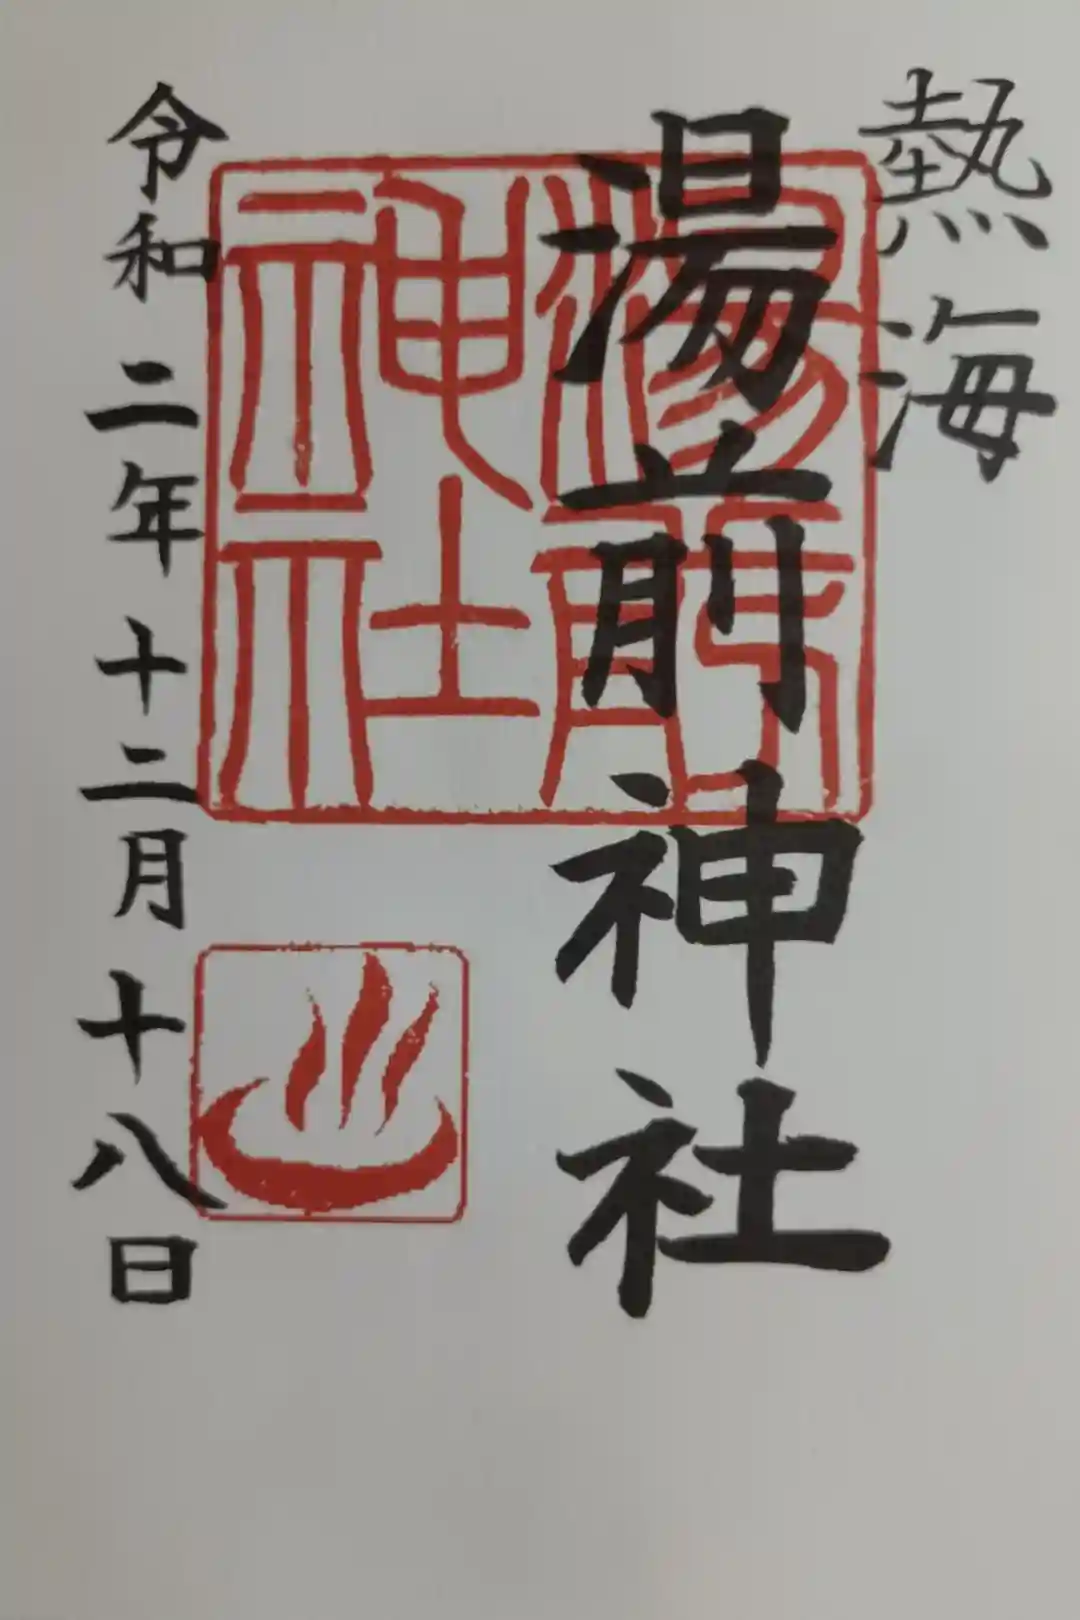 熱海
湯前神社
湯前
神社
令和二年十二月十八日